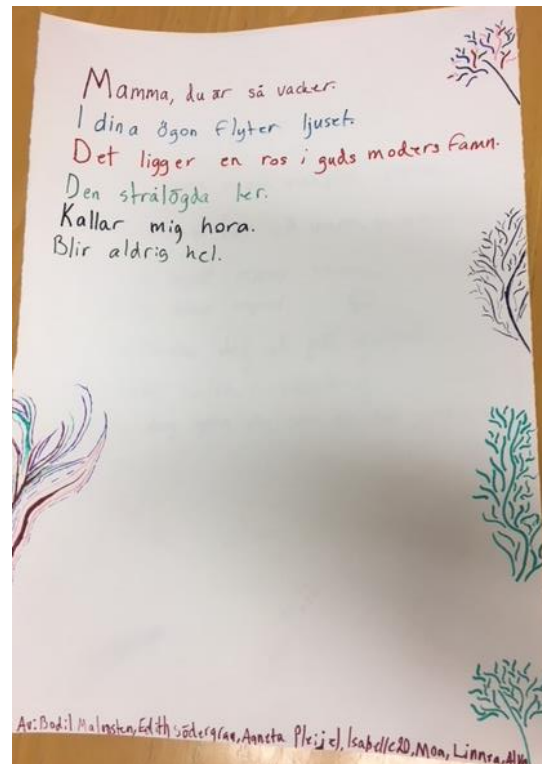 Mamma, du är så vacker.
I dina ögon flyter ljuset.
Det ligger en ros i guds moders famn.
Den strålögda ler.
Kallar mig hora.
Blir aldrig hel.
Av: Bodil Malmsten, Edith Södergran, Agneta Pleijel, Isabelle, Moa, Linnea, Alva